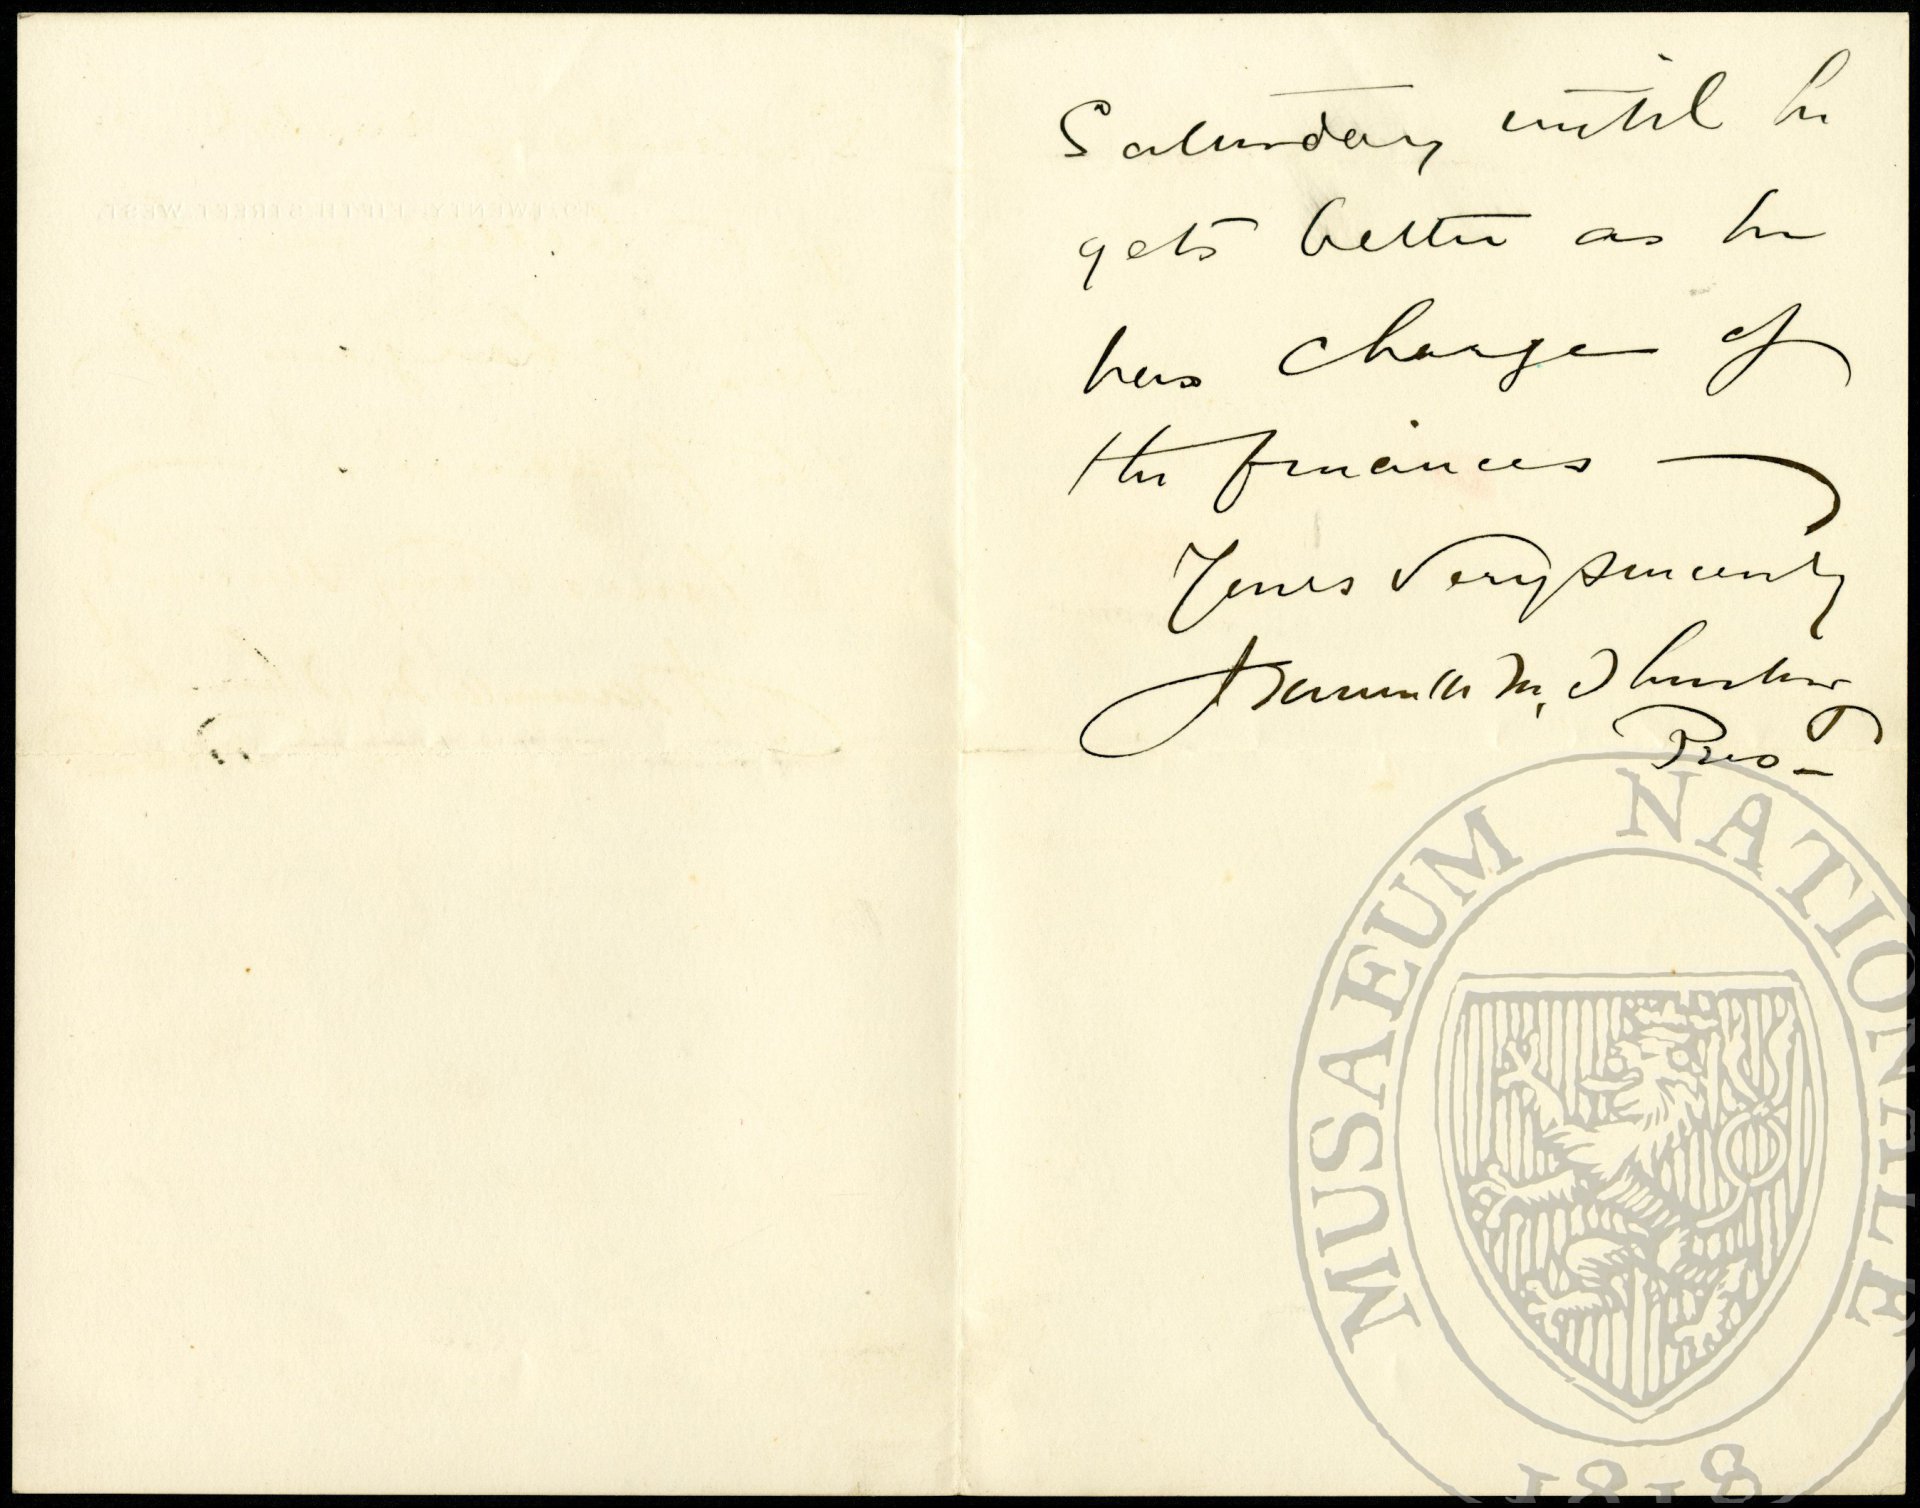 Saturday until he
gets better as he
has charge of
the finances —
Yours very sincerely
Jeannette M. Thurber
Pres –
19. TWENTY-FIFTH STREET WEST.
MUSAEUM NATIONALE
1818